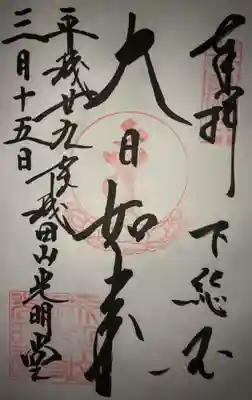 奉拝
下総国
大日如来
平成廿九年 成田山光明堂
三月十五日